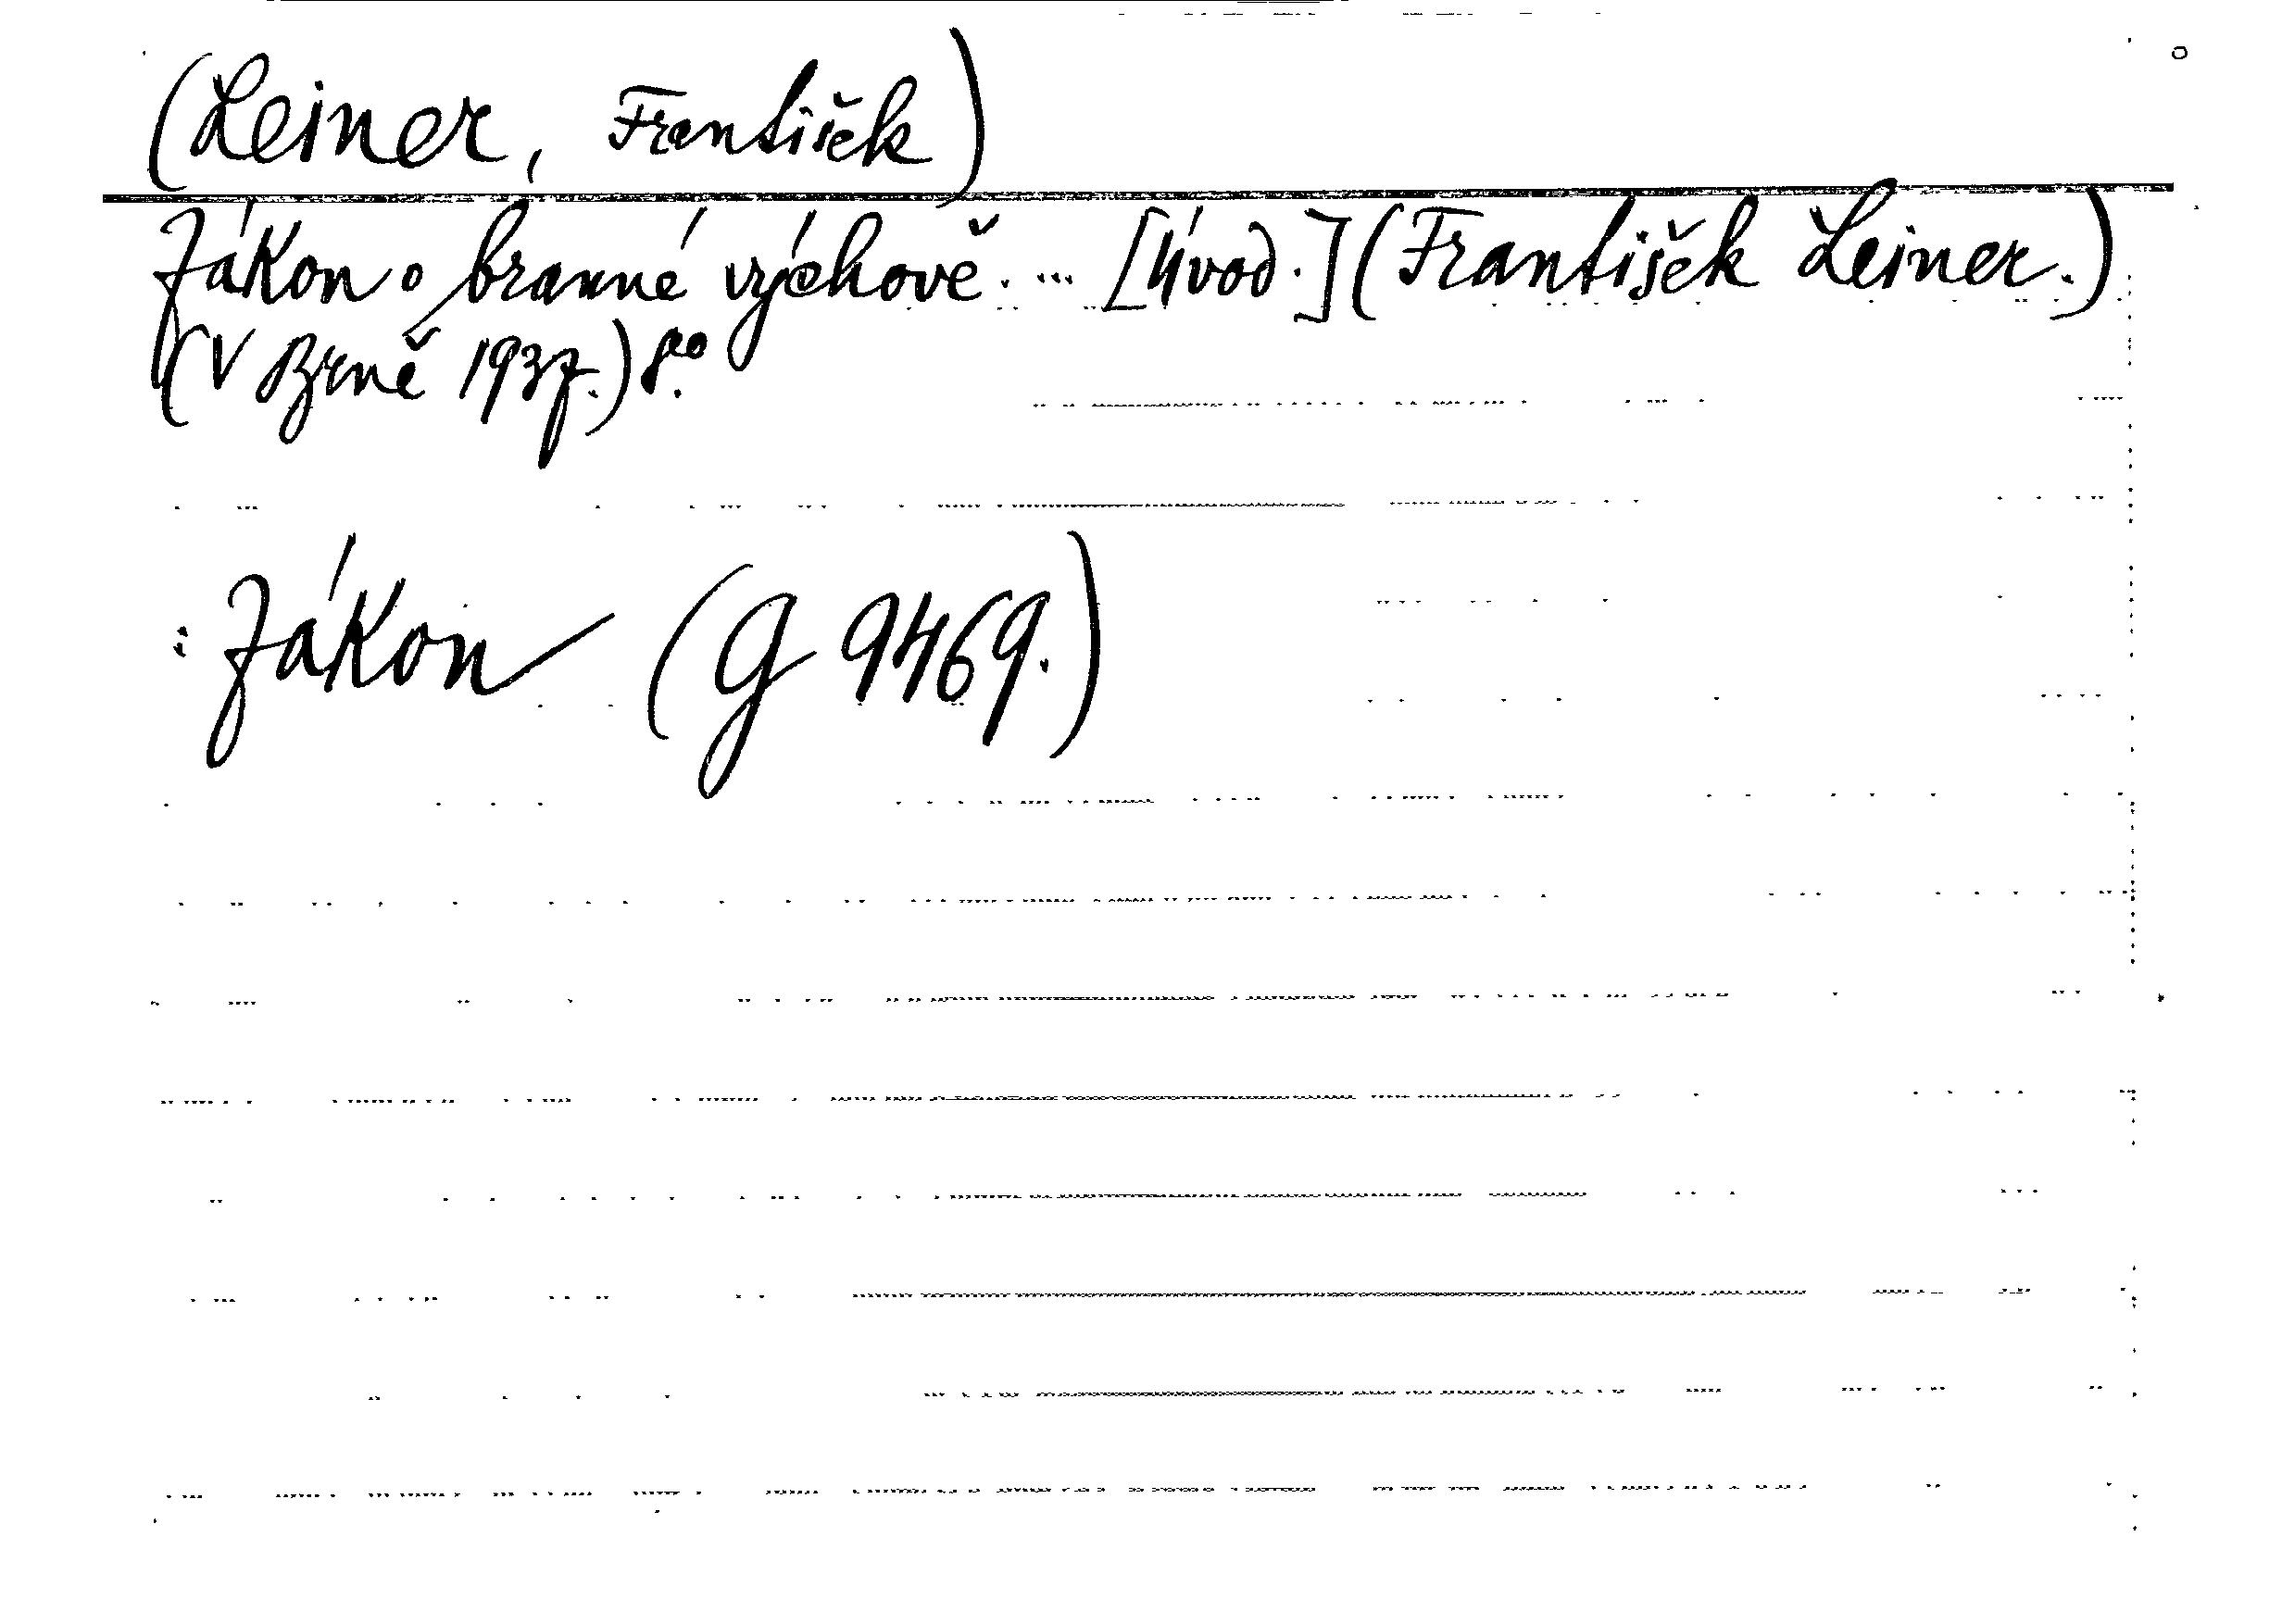 (Leiner, František)
Zákon o branné výchově. ... [Úvod.] (František Leiner.)
(V Brně 1937.) 8°.
: Zákon (G 9469.)